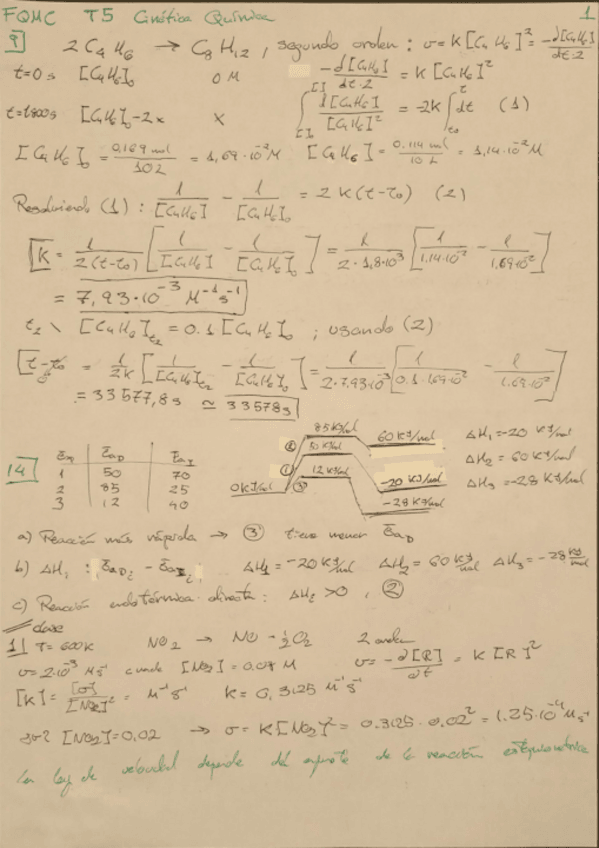 FQMC T5 Cinética Química 1
9 2 C4 H6 → C8 H12, segundo orden: v = K[C4 H6]² = -d[C4H6]/dt·2
t=0s [C4H6]₀ 0 M -d[C4H6]/dt·2 = K [C4H6]²
t=1800s [C4H6]₀-2x x ∫ d[C4H6]/[C4H6]² = -2K ∫ dt (1)
[C4 H6]₀ = 0,169 mol/10L = 1,69·10⁻² M [C4 H6] = 0,114 mol/10 L = 1,14·10⁻² M
Resolviendo (1): 1/[C4H6] - 1/[C4H6]₀ = 2 K(t-t₀) (2)
K = 1/2(t-t₀) [1/[C4H6] - 1/[C4H6]₀] = 1/2·1,8·10³ [1/1.14·10⁻² - 1/1,69·10⁻²]
= 7,93·10⁻³ M⁻¹s⁻¹
t₂ \ [C4H6]t₂ = 0.1 [C4 H6]₀ ; usando (2)
t-t₀ = 1/2K [1/[C4H6]t₂ - 1/[C4H6]₀] = 1/2·7.93·10⁻³ [1/0.1·1.69·10⁻² - 1/1.69·10⁻²]
= 33577,8s ≃ 33578s
14 Eaᴅ Eaɪ
1 50 70
2 85 25
3 12 40
0 KJ/mol 85 KJ/mol 60 KJ/mol
② 50 KJ/mol
① 12 KJ/mol -20 KJ/mol
③ -28 KJ/mol
ΔH₁ = -20 KJ/mol
ΔH₂ = 60 KJ/mol
ΔH₃ = -28 KJ/mol
a) Reacción más rápida → ③ tiene menor Eaᴅ
b) ΔHᵢ : Eaᴅᵢ - Eaɪᵢ ΔH₁ = -20 KJ/mol ΔH₂ = 60 KJ/mol ΔH₃ = -28 KJ/mol
c) Reacción endotérmica directa: ΔHᵢ >0, ②
clase
1 T=600K NO₂ → NO - ½O₂ 2 orden
v=2·10⁻³ M s⁻¹ cuando [NO₂] = 0.07 M v = -d[R]/dt = K [R]²
[K] = [v]/[NO₂]² = M⁻¹s⁻¹ K = 0,3125 M⁻¹s⁻¹
[NO₂]=0.02 → v = K[NO₂]² = 0.3125·0.02² = 1.25·10⁻⁴ M s⁻¹
La ley de velocidad depende de la reacción estequiométrica